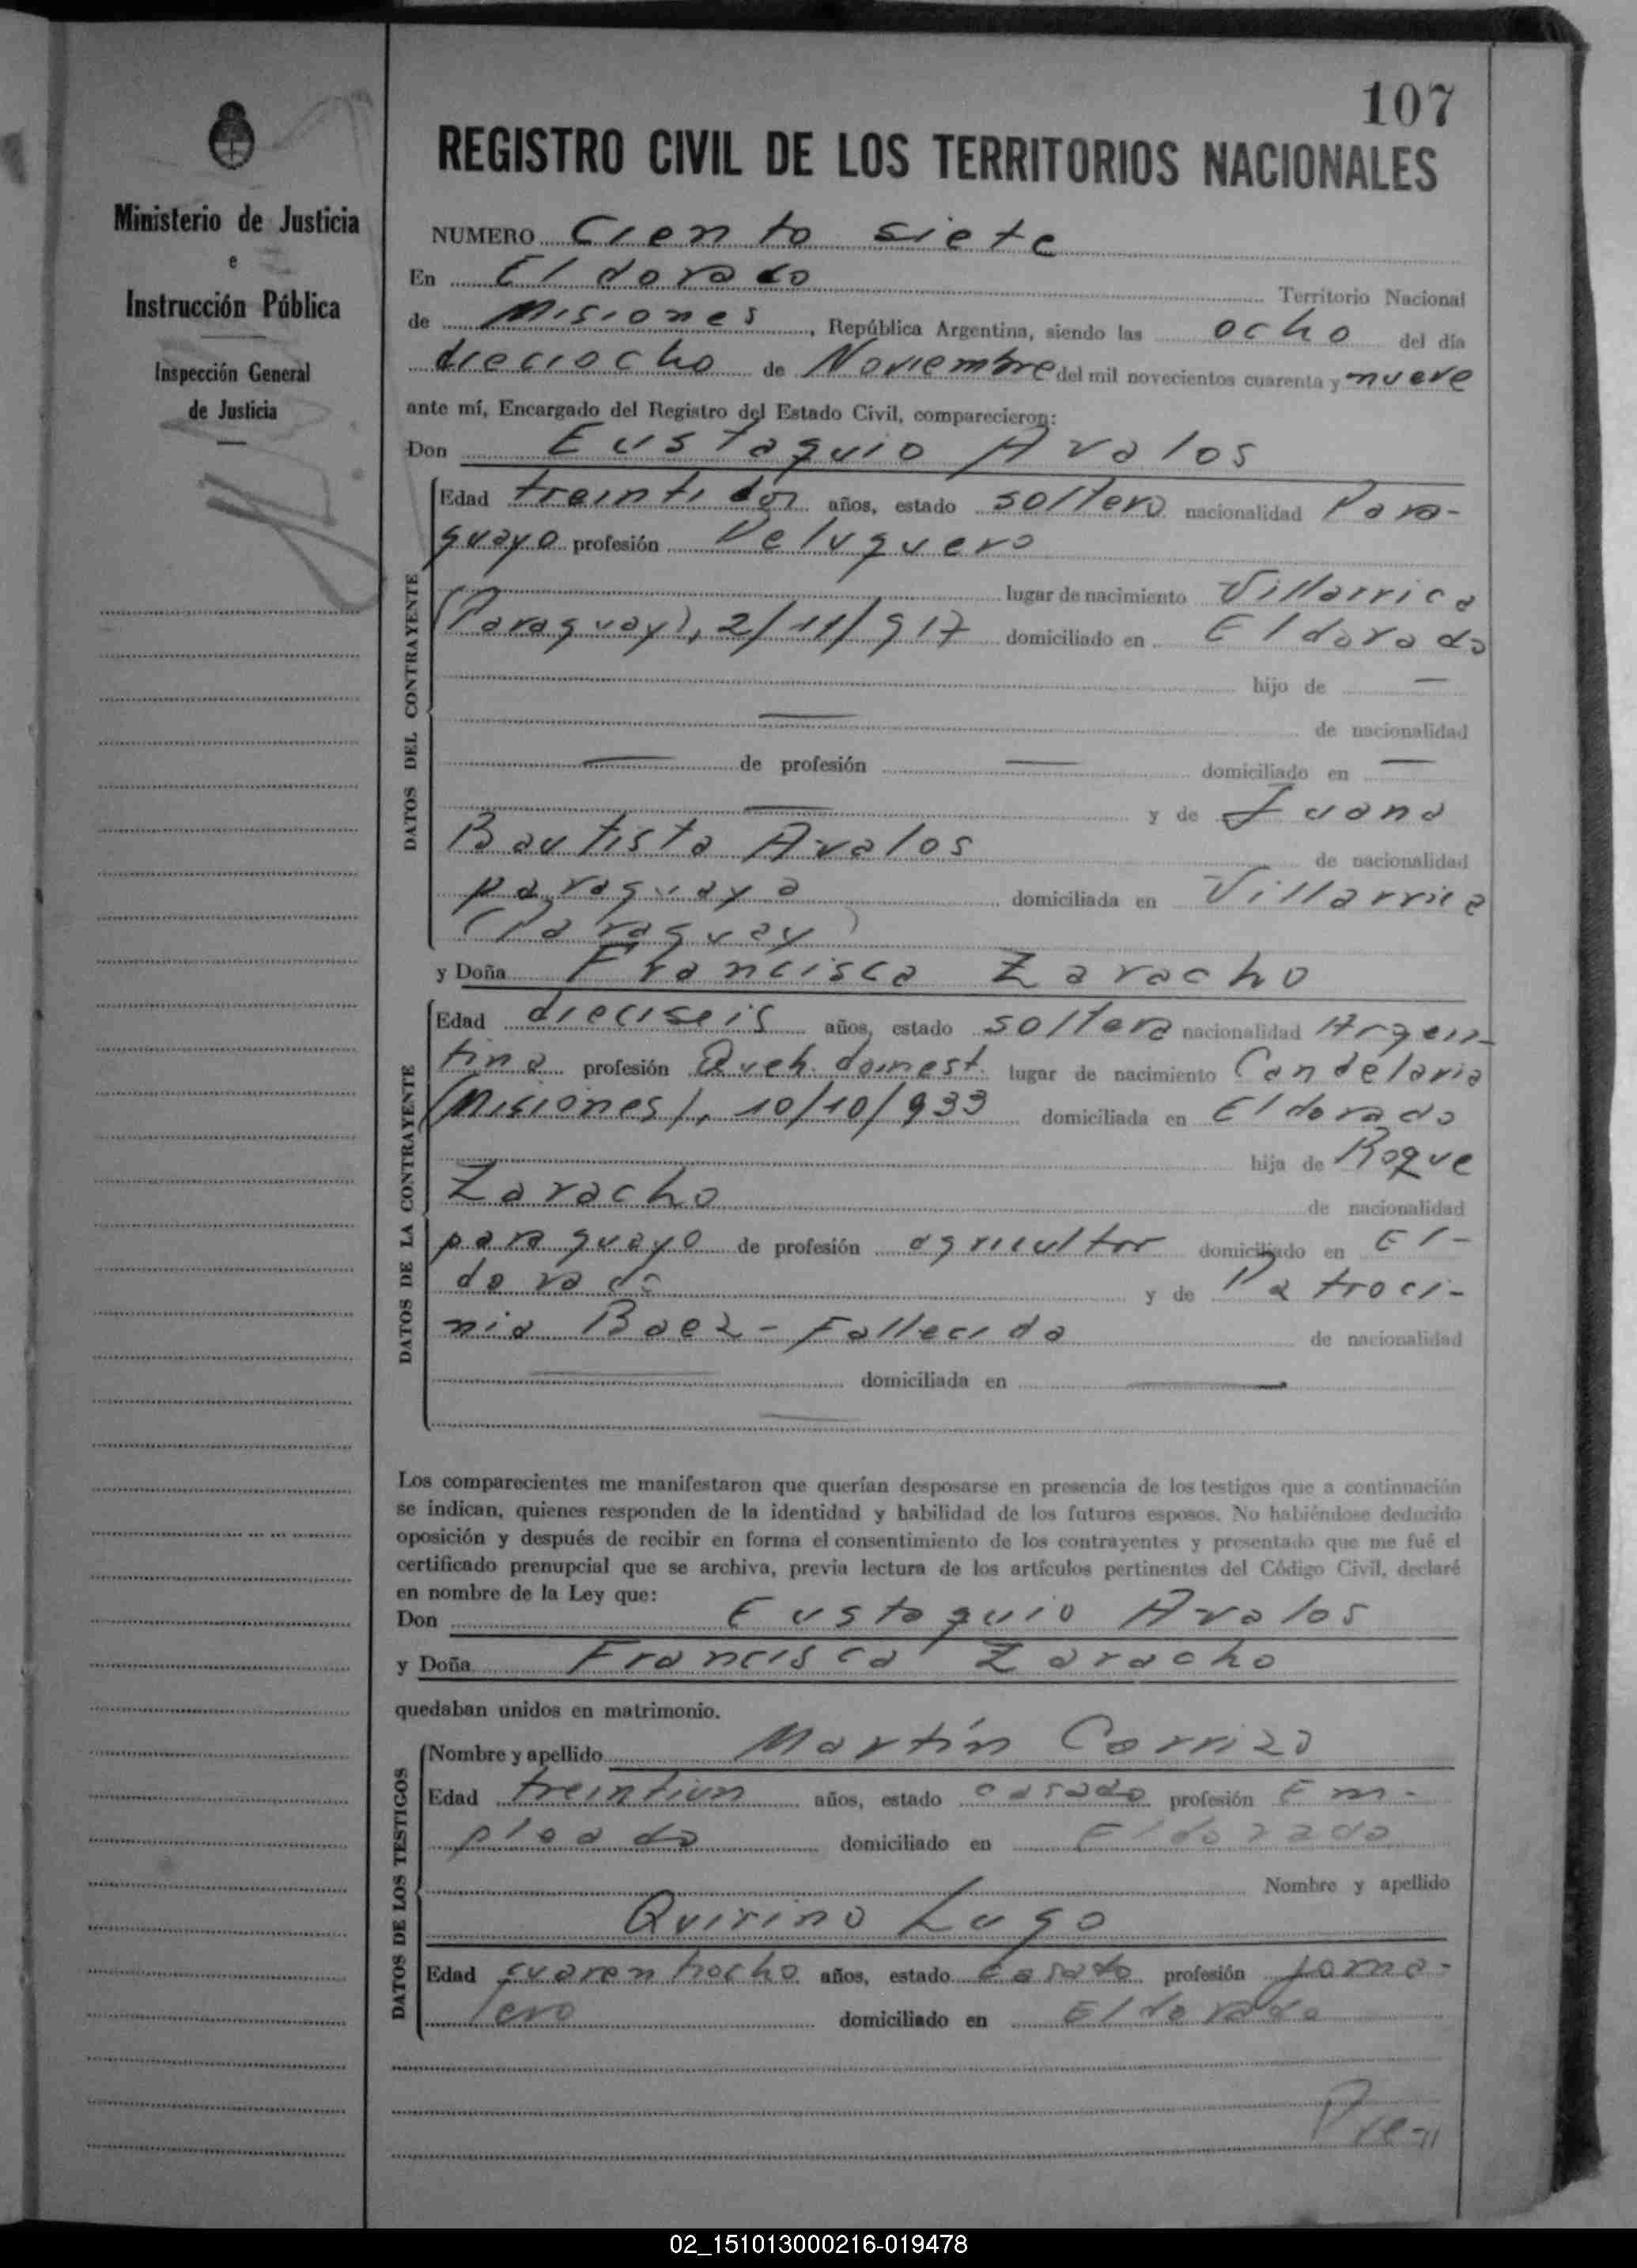 107
REGISTRO CIVIL DE LOS TERRITORIOS NACIONALES
Ministerio de Justicia
e
Instrucción Pública
Inspección General
de Justicia
NUMERO Ciento siete
En Eldorado Territorio Nacional
de Misiones, República Argentina, siendo las ocho del día
dieciocho de Noviembre del mil novecientos cuarenta y nueve
ante mí, Encargado del Registro del Estado Civil, comparecieron:
Don Eustaquio Avalos
DATOS DEL CONTRAYENTE
Edad treintidos años, estado soltero nacionalidad Para-
guayo profesión Peluquero
lugar de nacimiento Villarrica
(Paraguay), 2/11/917 domiciliado en Eldorado
hijo de —
— de nacionalidad
— de profesión — domiciliado en —
— y de Juana
Bautista Avalos de nacionalidad
paraguaya domiciliada en Villarrica
(Paraguay)
y Doña Francisca Zaracho
DATOS DE LA CONTRAYENTE
Edad dieciseis años, estado soltera nacionalidad Argen-
tina profesión Queh. domest. lugar de nacimiento Candelaria
(Misiones), 10/10/933 domiciliada en Eldorado
hija de Roque
Zaracho de nacionalidad
paraguayo de profesión agricultor domiciliado en El-
dorado y de Patroci-
nia Baez - Fallecida de nacionalidad
— domiciliada en —
—
Los comparecientes me manifestaron que querían desposarse en presencia de los testigos que a continuación
se indican, quienes responden de la identidad y habilidad de los futuros esposos. No habiéndose deducido
oposición y después de recibir en forma el consentimiento de los contrayentes y presentado que me fué el
certificado prenupcial que se archiva, previa lectura de los artículos pertinentes del Código Civil, declaré
en nombre de la Ley que:
Don Eustaquio Avalos
y Doña Francisca Zaracho
quedaban unidos en matrimonio.
DATOS DE LOS TESTIGOS
Nombre y apellido Martín Carrizo
Edad treintiun años, estado casado profesión Em-
pleado domiciliado en Eldorado
Nombre y apellido
Quirino Lugo
Edad cuarentiocho años, estado casado profesión jorna-
lero domiciliado en Eldorado
Pre-//
02_151013000216-019478